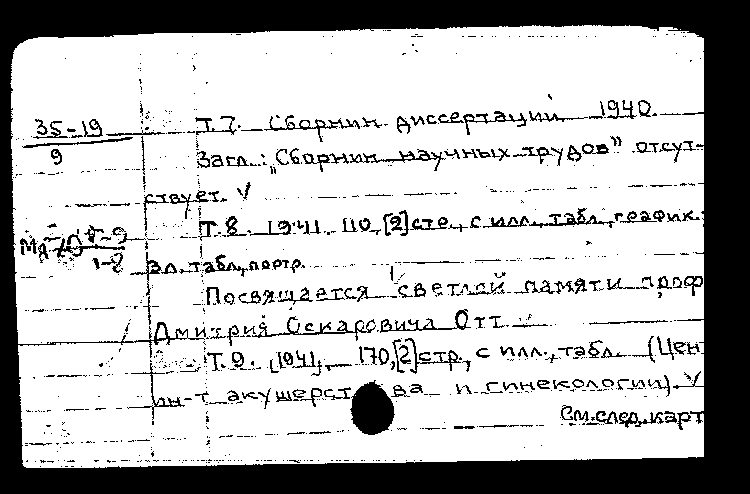 35-19
9
Т.7. Сборник диссертаций 1940.
Загл.: „Сборник научных трудов" отсут-
ствует. V
Т.8. 1941. 110,[2]стр., с илл., табл., график.;
3л. табл., портр.
Посвящается светлой памяти проф
Дмитрия Оскаровича Отт
Т.9. 1941, 170,[2]стр., с илл., табл. (Цен
ин-т акушерства и гинекологии). V
См. след. карт